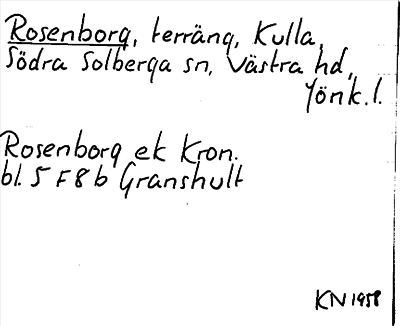 Rosenborg, terräng, Kulla,
Södra Solberga sn, Västra hd,
Jönk.l.
Rosenborg ek Kron.
bl. 5 F 8 b Granshult
KN 1958